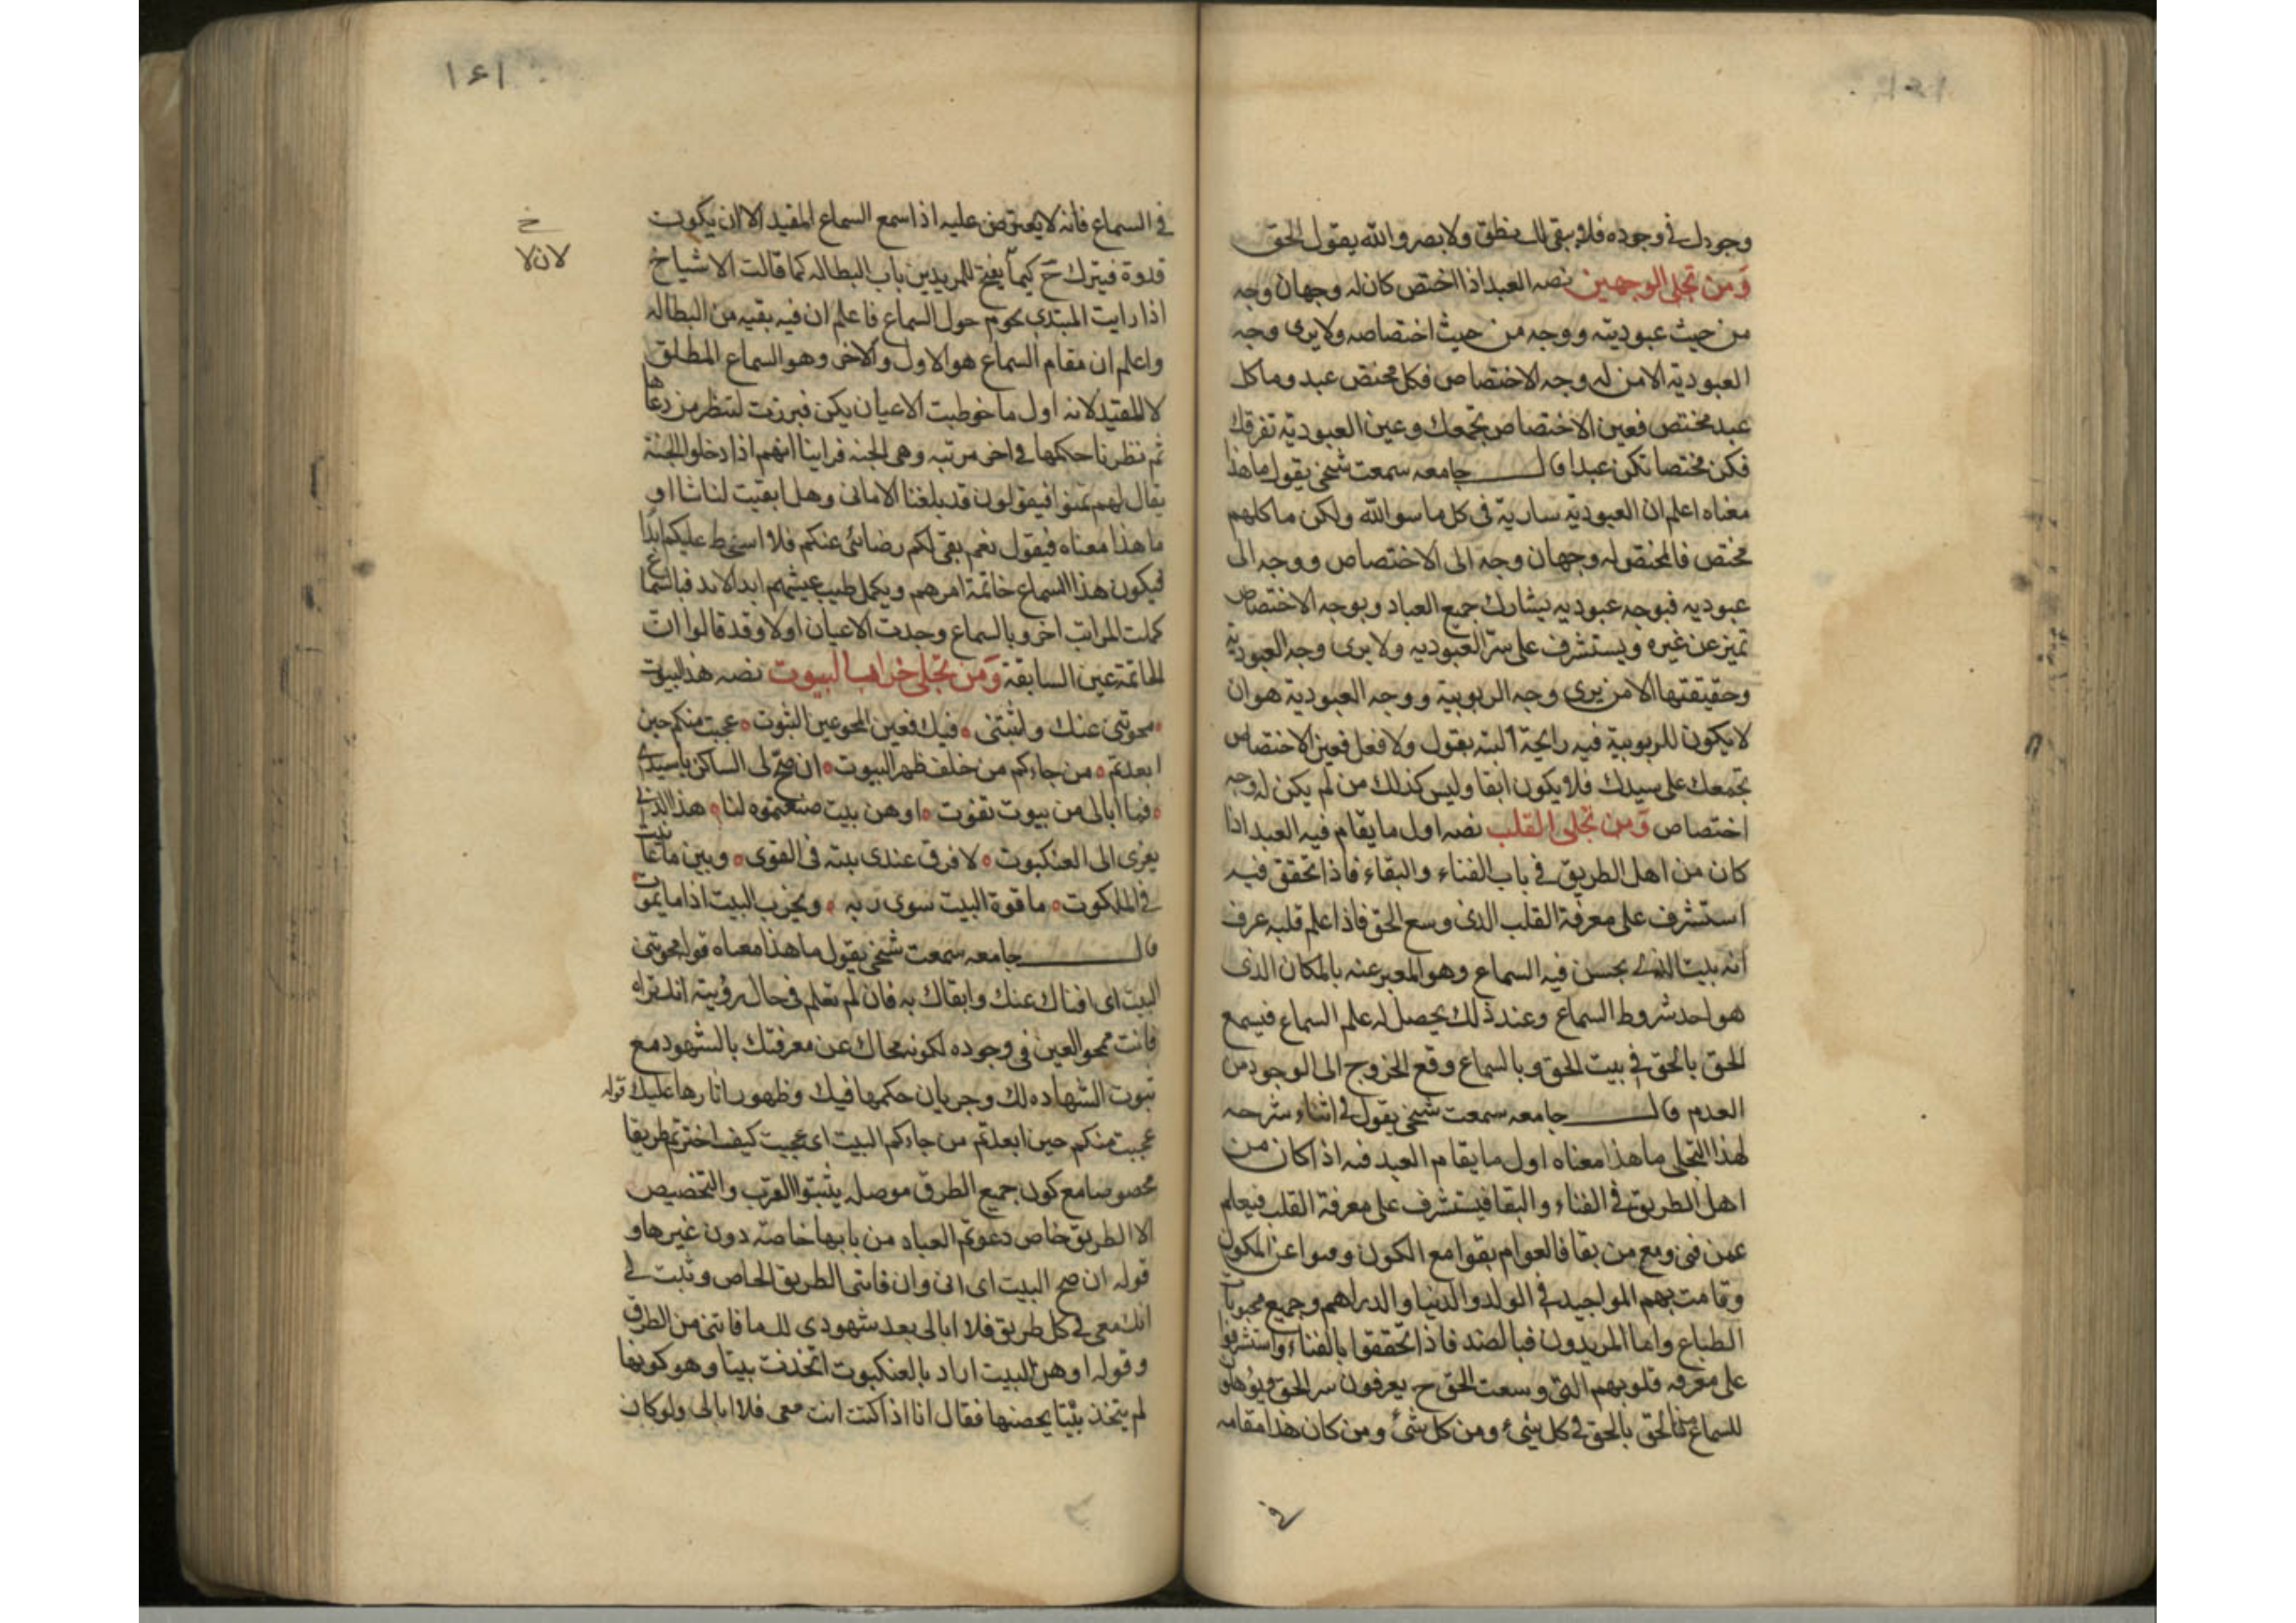 وجودك في وجوده فلا يبقى لك نطق ولا بصر والله يقول الحق
ومن تجلى الوجهين نصه العبد اذا اختص كان له وجهان وجه
من حيث عبوديته ووجه من حيث اختصاصه ولا يرى وجه
العبودية الا من له وجه الاختصاص فكل مختص عبد وما كل
عبد مختص فعين الاختصاص تجمعك وعين العبودية تفرقك
فكن مختصا تكن عبدا قال جامعه سمعت شيخي يقول ما هذا
معناه اعلم ان العبودية سارية في كل ما سوى الله ولكن ما كلهم
مختص فالمختص له وجهان وجه الى الاختصاص ووجه الى
عبوديه فبوجه عبوديه يشارك جميع العباد وبوجه الاختصاص
تميز عن غيره ويستشرف على سر العبوديه ولا يرى وجه العبودية
وحقيقتها الا من يرى وجه الربوبية ووجه العبودية هو ان
لا يكون للربوبية فيه رايحة البته بقول ولا فعل فعين الاختصاص
تجمعك على سيدك فلا يكون ابقا وليس كذلك من لم يكن له وجه
اختصاص ومن تجلى القلب نصه اول ما يقام فيه العبد اذا
كان من اهل الطريق في باب الفناء والبقاء فاذا تحقق فيه
استشرف على معرفة القلب الذي وسع الحق فاذا علم قلبه عرف
انه بيت الذي يحسن فيه السماع وهو المعبر عنه بالمكان الذي
هو احد شروط السماع وعند ذلك يحصل له علم السماع فيسمع
الحق بالحق في بيت الحق وبالسماع وقع الخروج الى الوجود من
العدم قال جامعه سمعت شيخي يقول في اثناء شرحه
لهذا التجلى ما هذا معناه اول ما يقام العبد فيه اذا كان من
اهل الطريق في الفناء والبقا فيستشرف على معرفة القلب فيعلم
عمن فنى ومع من بقا فالعوام بقوا مع الكون وفنوا عن المكون
وقامت بهم المواجيد في الولد والدنيا والدراهم وجميع محبوبات
الطباع واما المريدون فبالضد فاذا تحققوا بالفناء واستشرفوا
على معرفه قلوبهم التي وسعت الحق ح يعرفون سر الحق ويؤهلوا
للسماع من الحق بالحق في كل شيء ومن كل شيء ومن كان هذا مقامه
١٤١
في السماع فانه لا يعترض عليه اذا سمع السماع المقيد الا ان يكون
خ
لان لا
قدوة فيترك ح كيما يفتح للمريدين باب البطاله كما قالت الاشياخ
اذا رايت المبتدي يحوم حول السماع فاعلم ان فيه بقيه من البطاله
واعلم ان مقام السماع هو الاول والاخر وهو السماع المطلق
لا المقيد لانه اول ما خوطبت الاعيان بكن فبرزت لتنظر من دعاها
ثم نظرنا حكمها في اخر مرتبه وهي الجنه فراينا انهم اذا دخلوا الجنة
يقال لهم تمنوا فيقولون قد بلغنا الاماني وهل ابقيت لنا شا او
ما هذا معناه فيقول نعم بقى لكم رضائي عنكم فلا اسخط عليكم ابدا
فيكون هذا السماع خاتمة امرهم ويكمل طيب عيشهم ابد الابد فبالسماع
كملت المراتب اخر وبالسماع وجدت الاعيان اولا وقد قالوا ان
الخاتمة عين السابقة ومن تجلى خراب البيوت نصه هذا البيوت
محوتني عنك واثبتني فيك فعين المحو عين الثبوت عجبت منكم حين
ابعدتم من جاءكم من خلف ظهر البيوت ان صح لى الساكن يا سيدي
فما ابالى من بيوت تفوت اوهن بيت صنعتموه لنا هذا الذي
يعزى الى العنكبوت لا فرق عندى بينه في القوى وبين ما عاينت
في الملكوت ما قوة البيت سوى ربه ويخرب البيت اذا ما يموت
قال جامعه سمعت شيخي يقول ما هذا معناه قوله محوتني
البيت اى افناك عنك وابقاك به فان لم تعلم في حال رؤيته انك تراه
فانت محو العين في وجوده لكونه محاك عن معرفتك بالشهود مع
ثبوت الشهاده لك وجريان حكمها فيك وظهور اثارها عليك قوله
عجبت منكم حين ابعدتم من جاءكم البيت اى عجبت كيف اخترتم طريقا
مخصوصا مع كون جميع الطرق موصله يثبتوا القرب والتخصيص
الا الطريق خاص دعوتم العباد من بابها خاصة دون غيرها و
قوله ان صح البيت اى انى وان فاتنى الطريق الخاص وثبت لي
انك معي في كل طريق فلا ابالى بعد شهودى لك ما فاتنى من الطرق
وقوله اوهن البيت اراد بالعنكبوت اتخذت بيتا وهو كونها
لم يتخذ بيتا يحصنها فقال انا اذا كنت انت معى فلا ابالى ولو كان